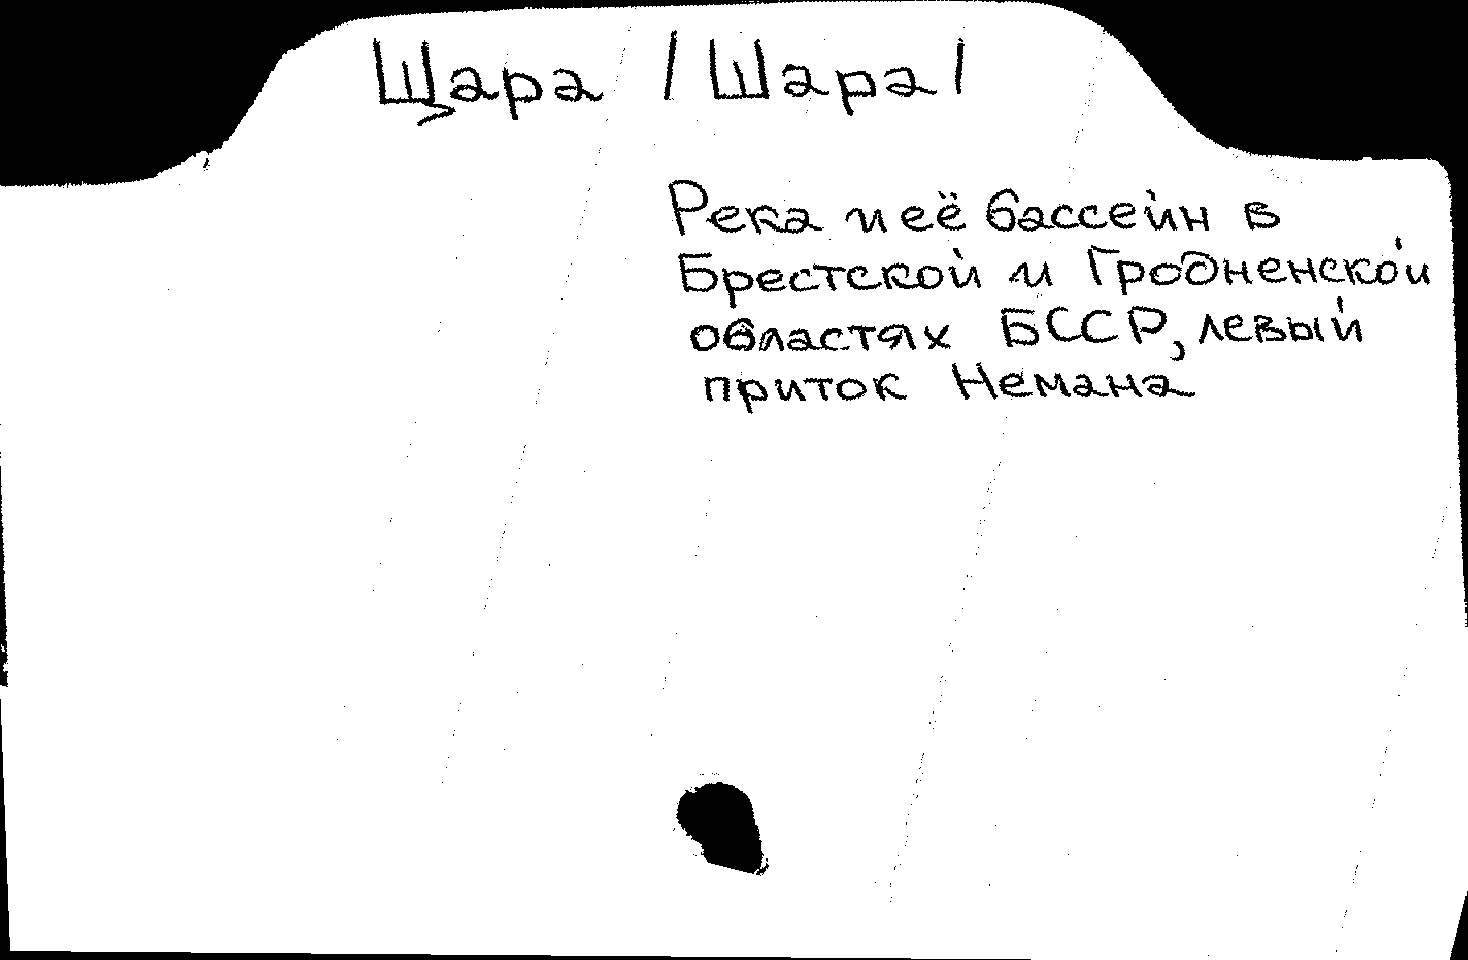 Щара /Шара/
Река и её бассейн в
Брестской и Гродненской
областях БССР, левый
приток Немана